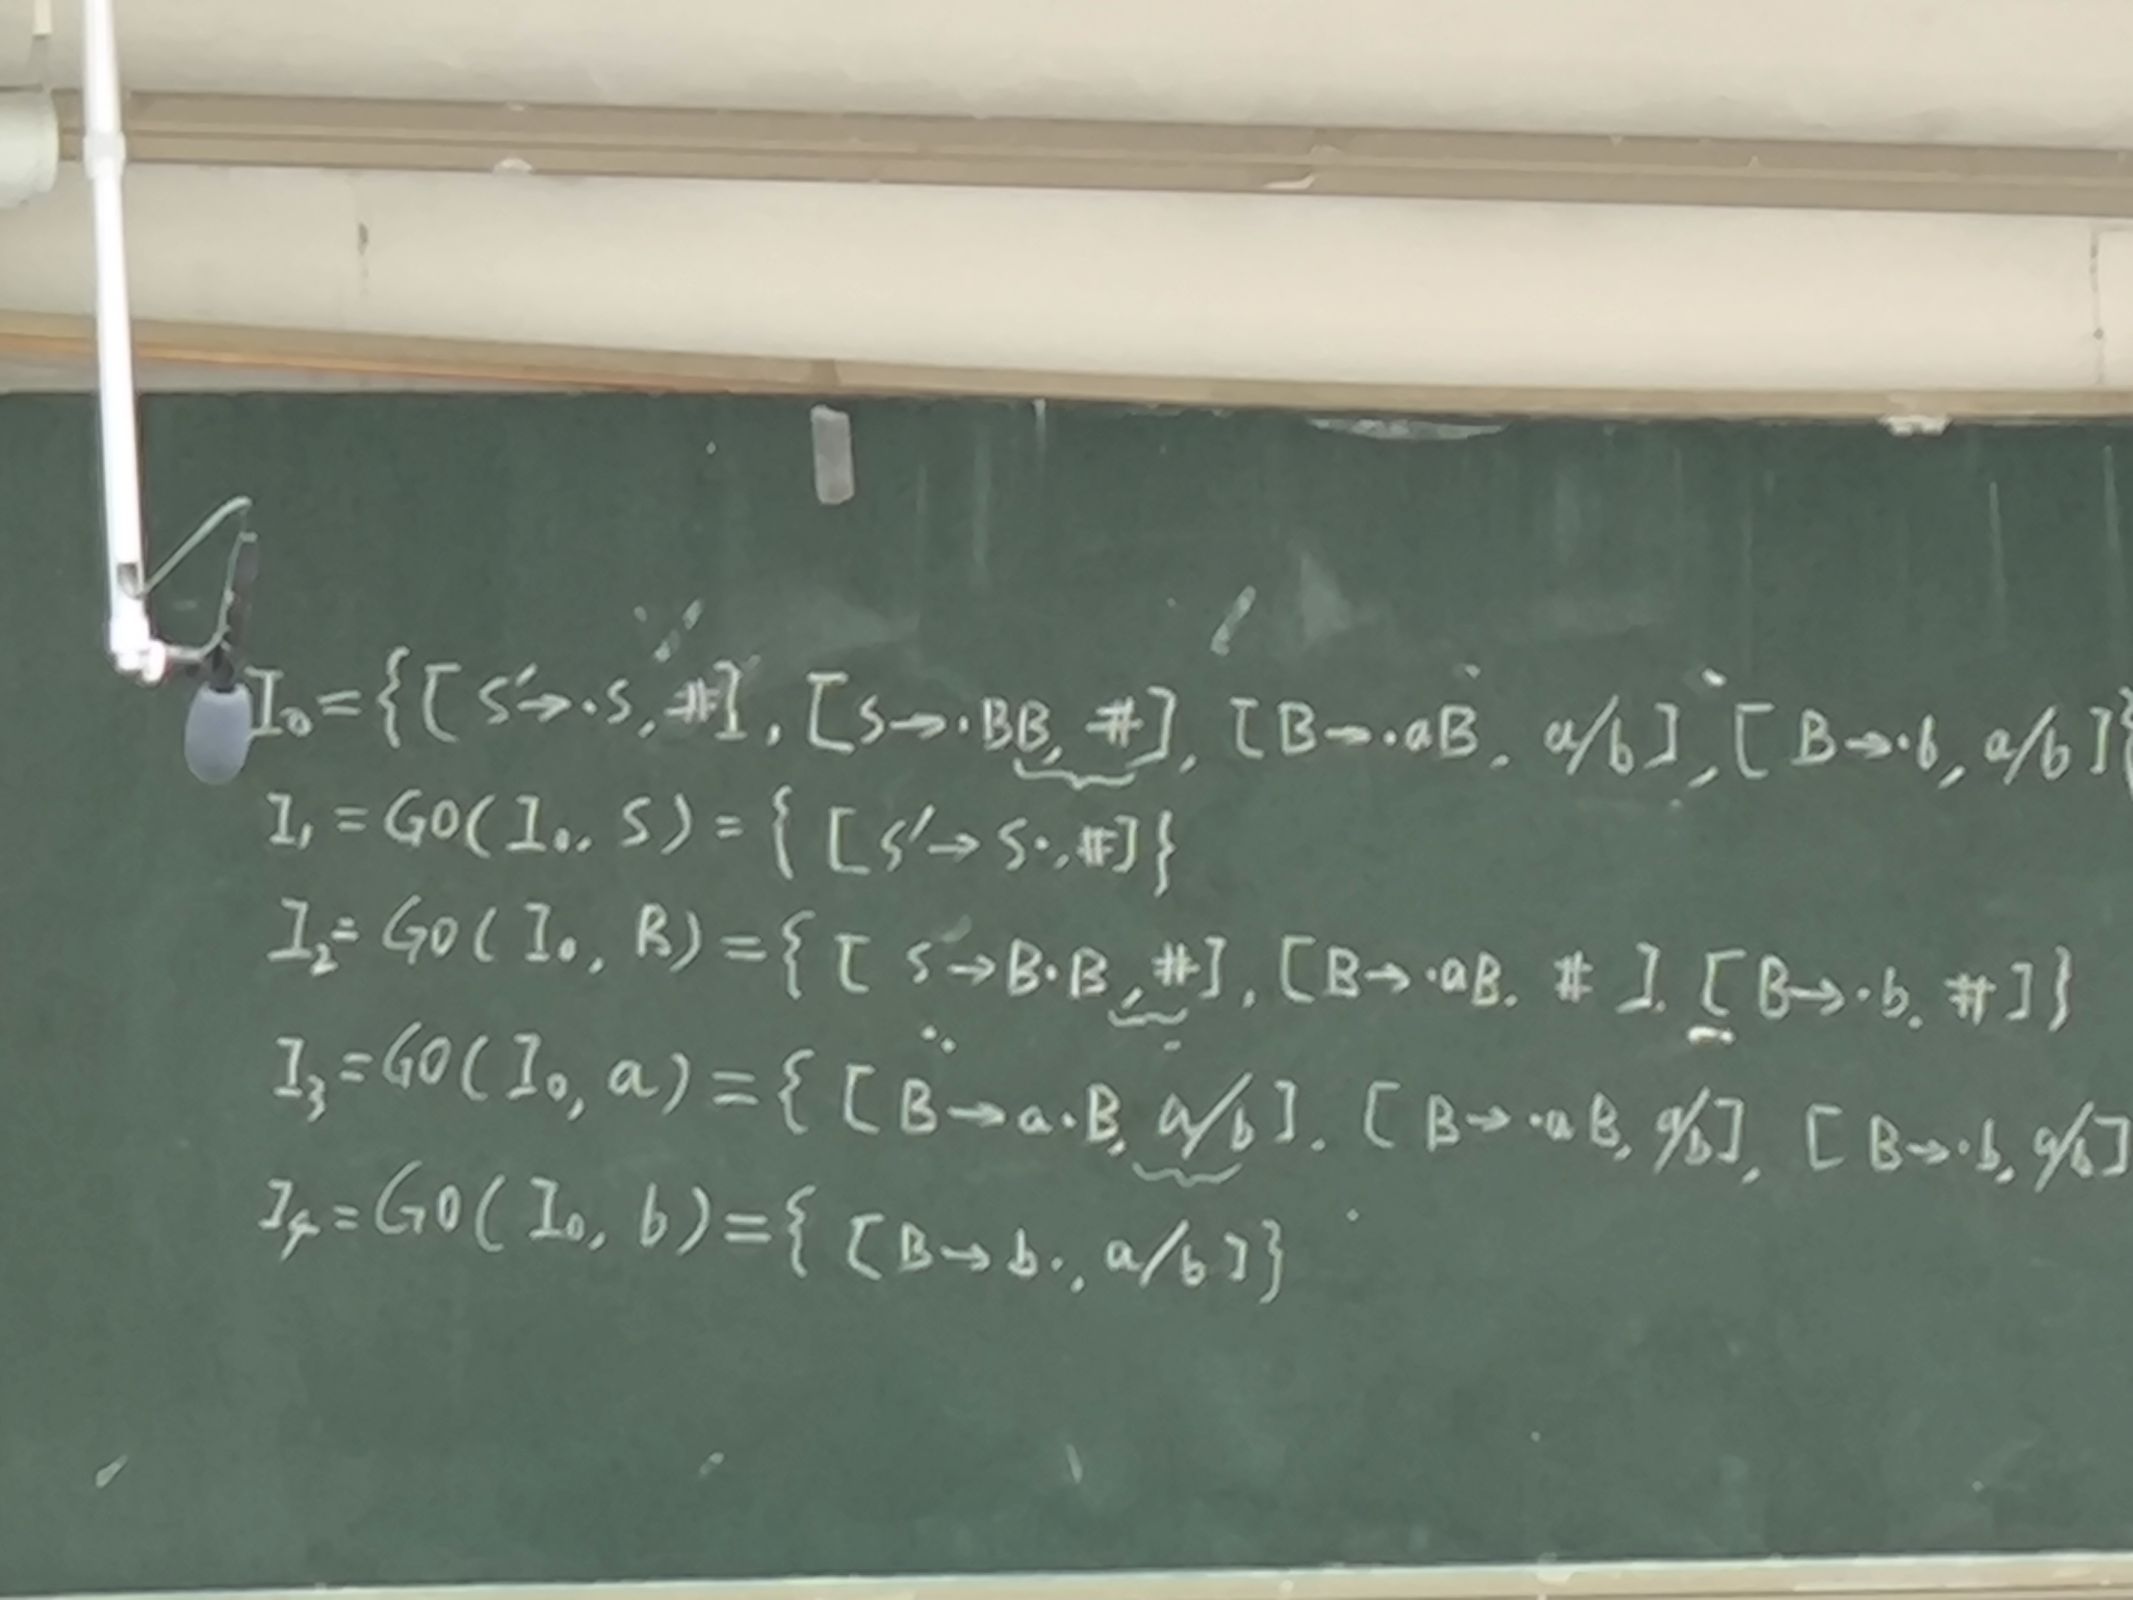 I₀={[S'→·S,#],[S→·BB,#],[B→·aB,a/b],[B→·b,a/b]}
I₁=GO(I₀,S)={[S'→S·,#]}
I₂=GO(I₀,B)={[S→B·B,#],[B→·aB,#],[B→·b,#]}
I₃=GO(I₀,a)={[B→a·B,a/b],[B→·aB,a/b],[B→·b,a/b]
I₄=GO(I₀,b)={[B→b·,a/b]}